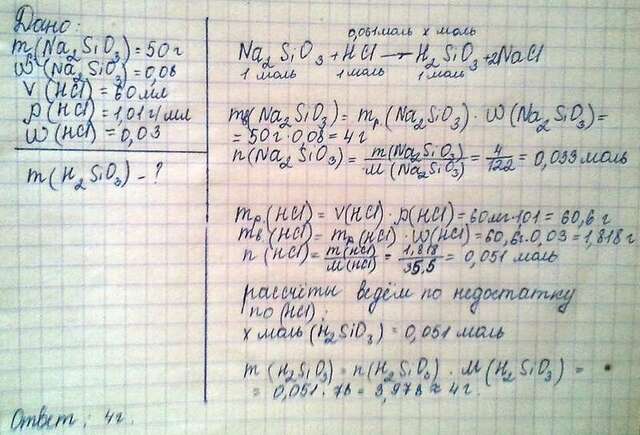 Дано:
m(Na2SiO3)=50г
ω(Na2SiO3)=0,08
V(HCl)=60мл
ρ(HCl)=1,01г/мл
ω(HCl)=0,03
m(H2SiO3)-?
0,051моль x моль
Na2SiO3+HCl→H2SiO3+2NaCl
1 моль 1моль 1моль
mв(Na2SiO3)=mр(Na2SiO3)·ω(Na2SiO3)=
=50г·0,08=4г
n(Na2SiO3)=m(Na2SiO3)/M(Na2SiO3)=4/122=0,033моль
mр.(HCl)=V(HCl)·ρ(HCl)=60мг·1,01=60,6г
mв.(HCl)=mр(HCl)·ω(HCl)=60,6г·0,03=1,818г
n(HCl)=m(HCl)/M(HCl)=1,818/35,5=0,051 моль
рассчёты ведём по недостатку
по (HCl);
x моль(H2SiO3)=0,051моль
m(H2SiO3)=n(H2SiO3)·M(H2SiO3)=
=0,051·78=3,978≈4г.
Ответ: 4г.